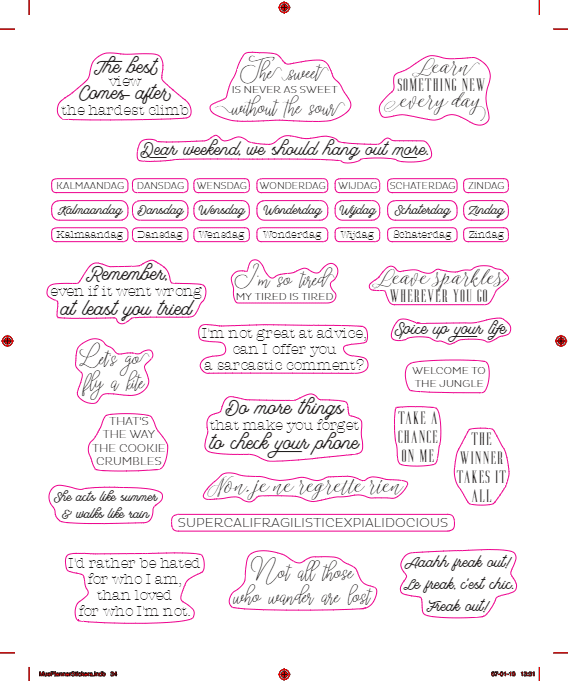 The best
view
Comes after
the hardest climb
The sweet
IS NEVER AS SWEET
without the sour
Learn
SOMETHING NEW
every day
Dear weekend, we should hang out more.
KALMAANDAG DANSDAG WENSDAG WONDERDAG WIJDAG SCHATERDAG ZINDAG
Kalmaandag Dansdag Wensdag Wonderdag Wijdag Schaterdag Zindag
Kalmaandag Dansdag Wensdag Wonderdag Wijdag Schaterdag Zindag
Remember,
even if it went wrong
at least you tried
I'm so tired
MY TIRED IS TIRED
Leave sparkles
WHEREVER YOU GO
I'm not great at advice,
can I offer you
a sarcastic comment?
Spice up your life
Let's go
fly a kite
WELCOME TO
THE JUNGLE
THAT'S
THE WAY
THE COOKIE
CRUMBLES
Do more things
that make you forget
to check your phone
TAKE A
CHANCE
ON ME
THE
WINNER
TAKES IT
ALL
She acts like summer
& walks like rain
Non, je ne regrette rien
SUPERCALIFRAGILISTICEXPIALIDOCIOUS
I'd rather be hated
for who I am,
than loved
for who I'm not.
Not all those
who wander are lost
Aaahh freak out!
Le freak, c'est chic.
Freak out!
MusPlannerStickers.indb 34
07-01-19 13:31